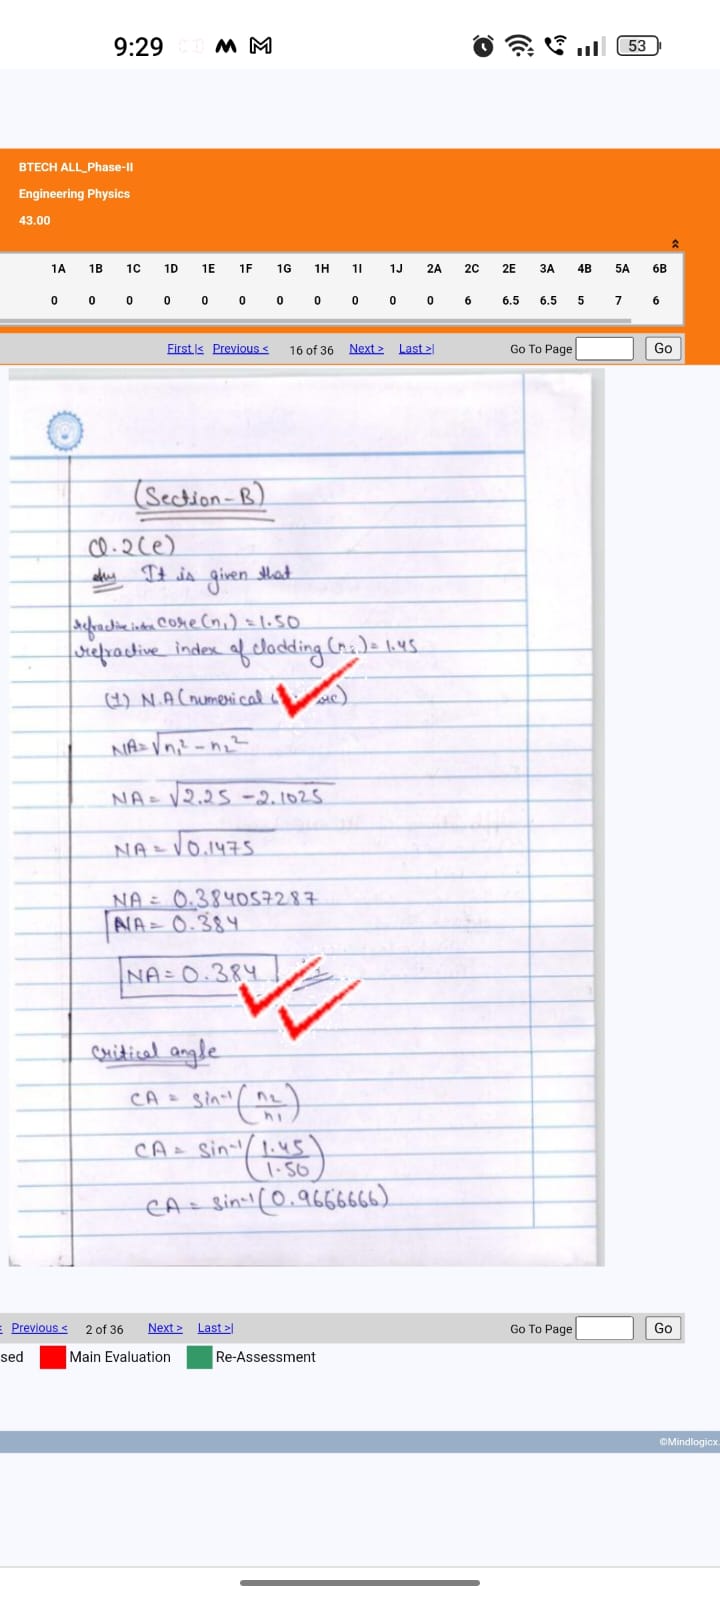 9:29
53
BTECH ALL_Phase-II
Engineering Physics
43.00
1A 1B 1C 1D 1E 1F 1G 1H 1I 1J 2A 2C 2E 3A 4B 5A 6B
0 0 0 0 0 0 0 0 0 0 0 6 6.5 6.5 5 7 6
First |< Previous < 16 of 36 Next > Last >| Go To Page Go
(Section-B)
Q.2(e)
It is given that
refractive index core (n₁) = 1.50
refractive index of cladding (n₂) = 1.45
(1) N.A (numerical
NA = √n₁² - n₂²
NA = √2.25 - 2.1025
NA = √0.1475
NA = 0.384057287
NA = 0.384
NA = 0.384
Critical angle
CA = sin⁻¹ (n₂/n₁)
CA = sin⁻¹ (1.45/1.50)
CA = sin⁻¹ (0.9666666)
Previous < 2 of 36 Next > Last >| Go To Page Go
sed Main Evaluation Re-Assessment
©Mindlogicx